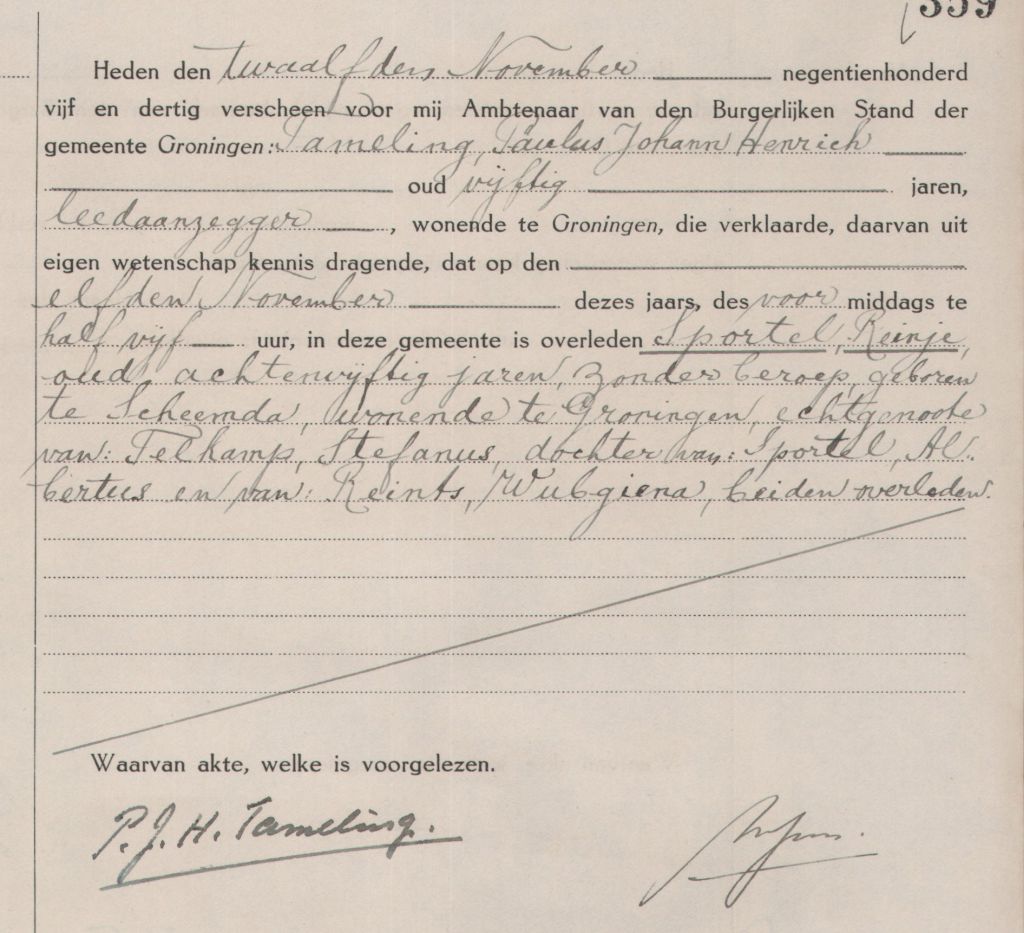 359
Heden den twaalfden November negentienhonderd
vijf en dertig verscheen voor mij Ambtenaar van den Burgerlijken Stand der
gemeente Groningen: Tameling, Paulus Johann Henrich
oud vijftig jaren,
leedaanzegger, wonende te Groningen, die verklaarde, daarvan uit
eigen wetenschap kennis dragende, dat op den
elfden November dezes jaars, des voor middags te
half vijf uur, in deze gemeente is overleden Sportel, Reinje,
oud achtenvijftig jaren, zonder beroep, geboren
te Scheemda, wonende te Groningen, echtgenoote
van: Telkamp, Stefanus, dochter van: Sportel, Al-
bertus en van: Reints, Wubgiena, beiden overleden.
Waarvan akte, welke is voorgelezen.
P.J.H. Tameling.